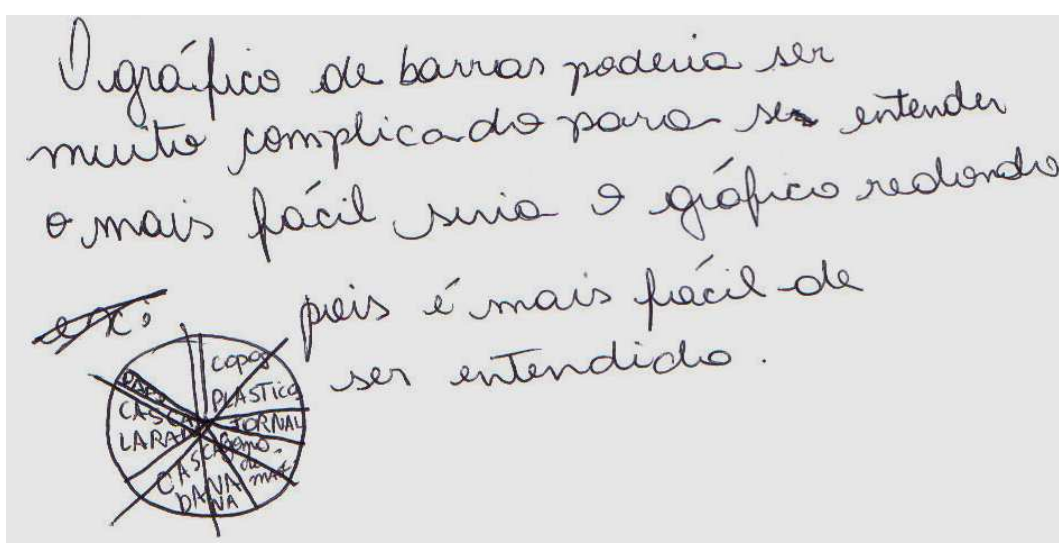 O gráfico de barras poderia ser
muito complicado para se entender
o mais fácil seria o gráfico redondo
ex: pois é mais fácil de
ser entendido.
COPOS
PLASTICO
JORNAL
CASCA
LARAN
CASCA
BANA
NA